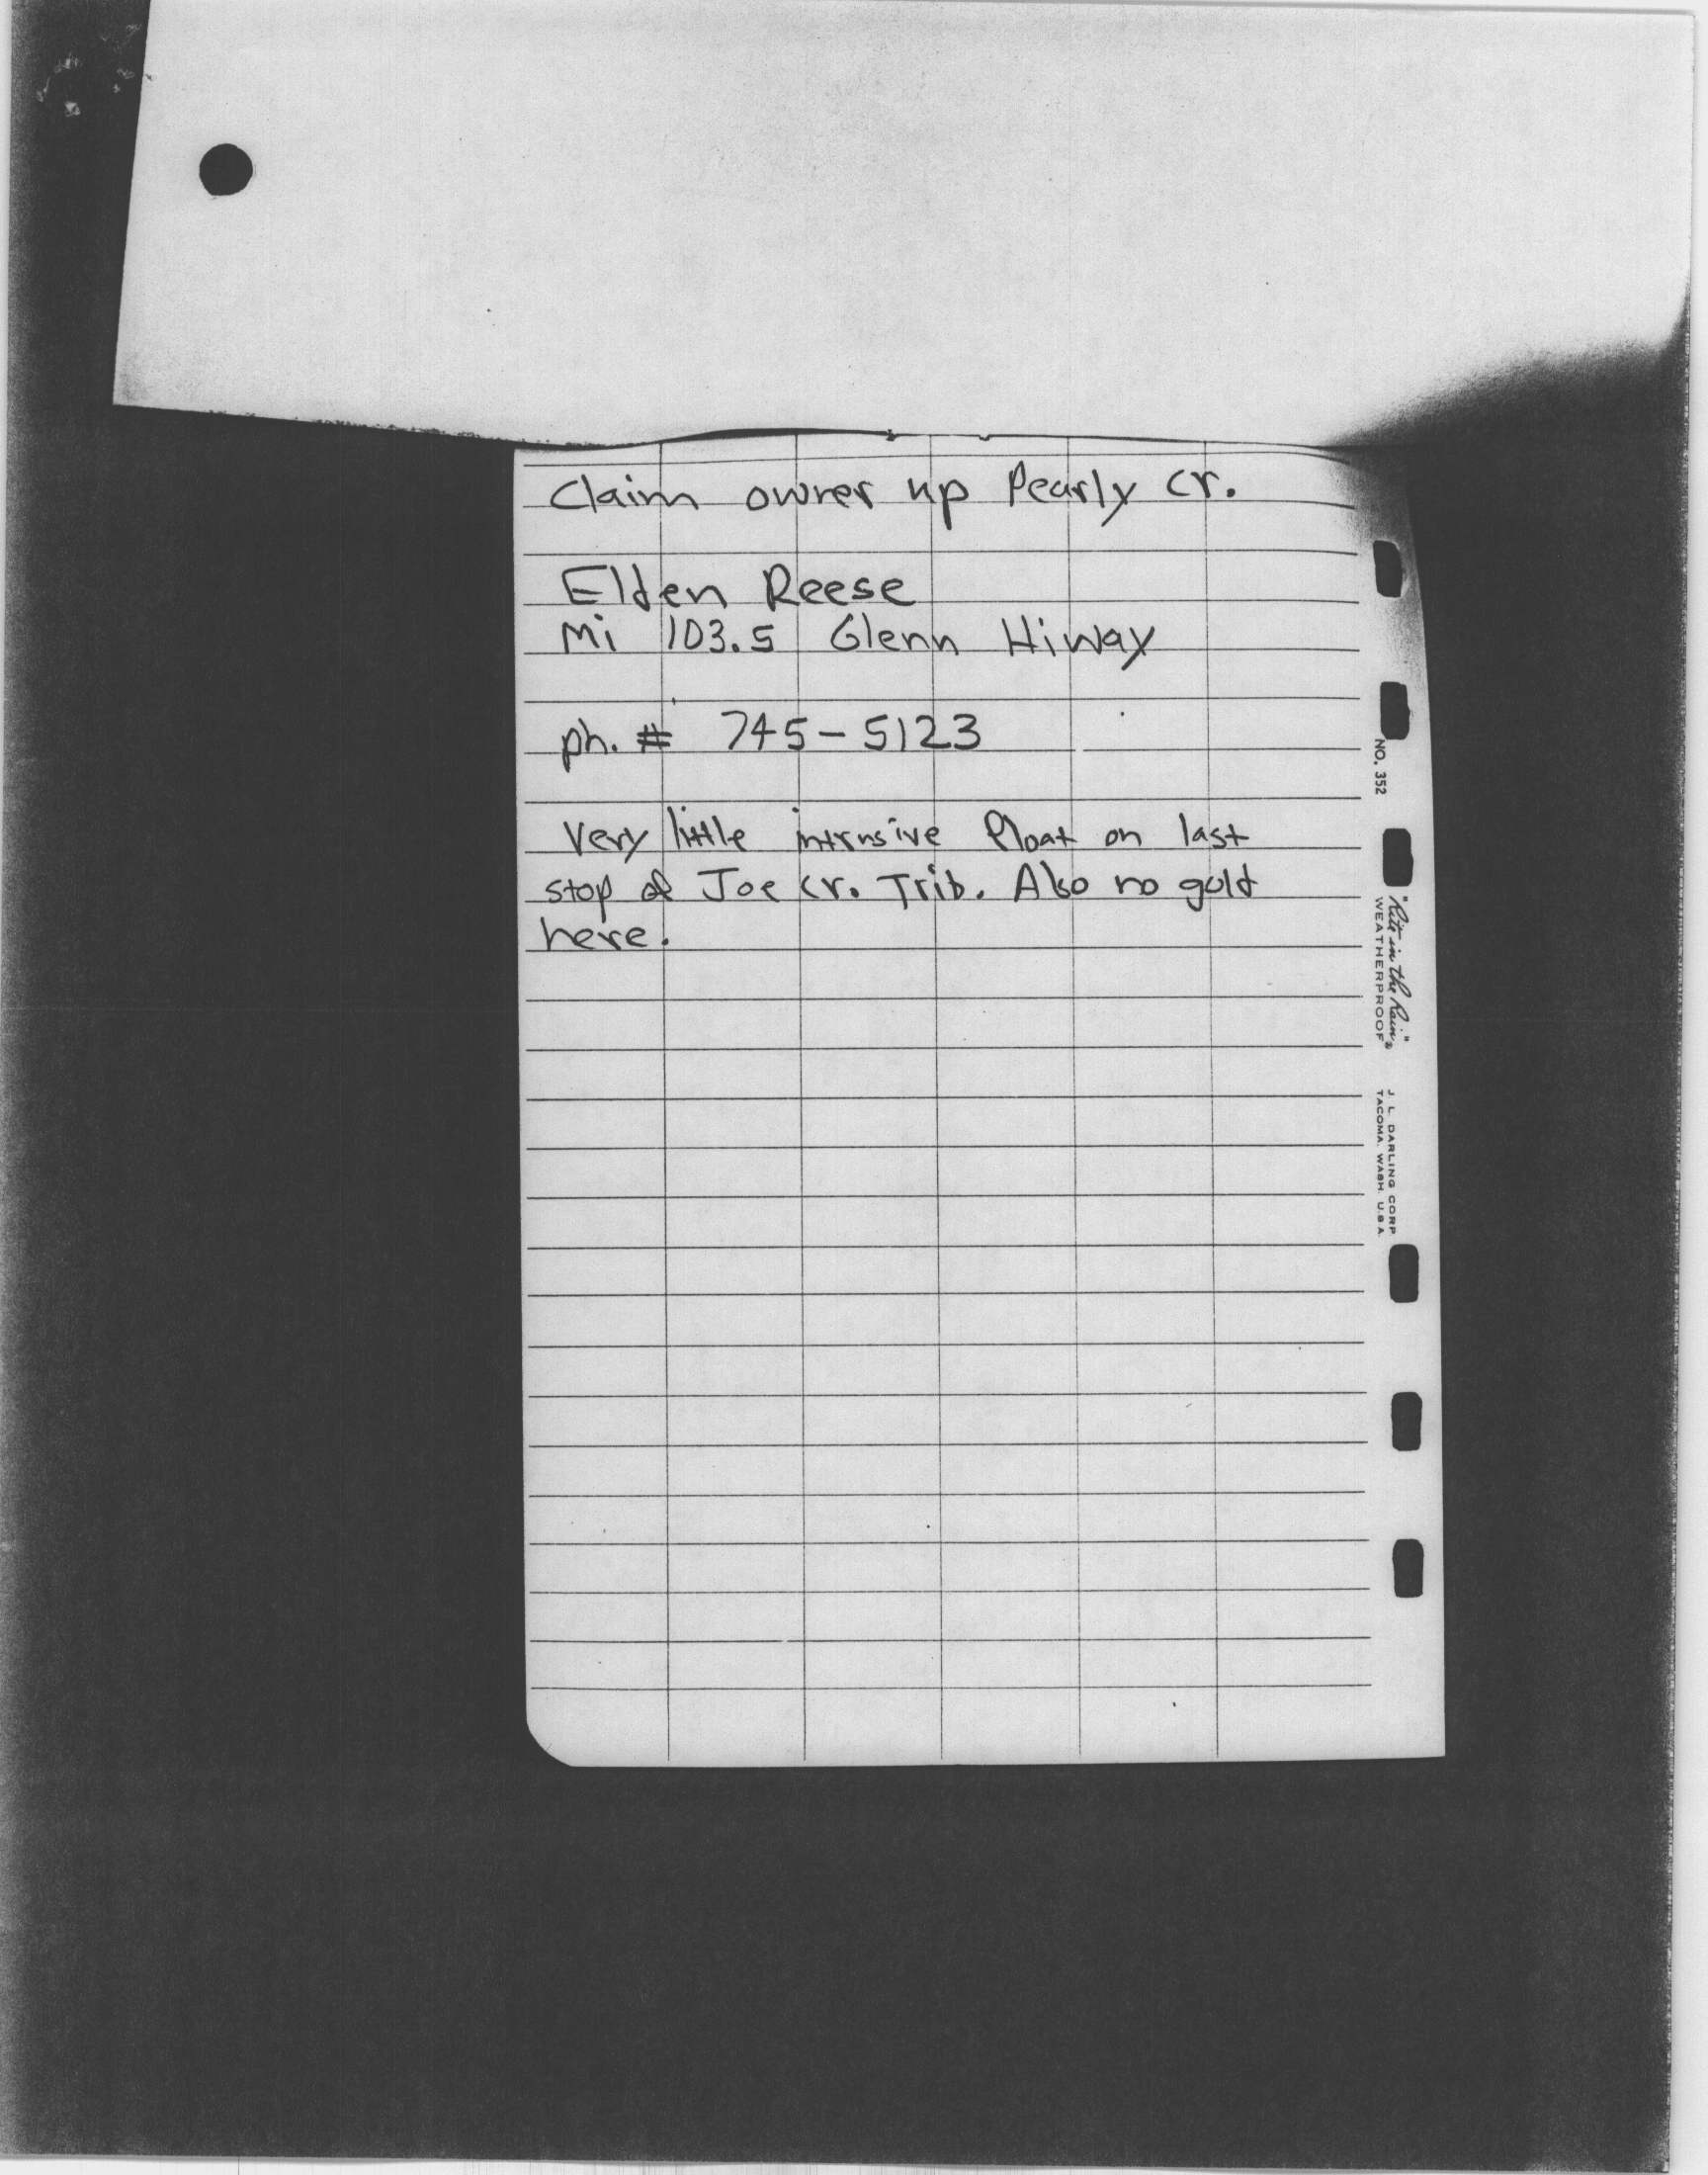 Claim owner up Pearly cr.
Elden Reese
Mi 103.5 Glenn Hiway
ph. # 745-5123
Very little intrusive float on last
stop of Joe cr. Trib. Also no gold
here.
NO. 352
"Rite in the Rain"
WEATHERPROOF
J. L. DARLING CORP
TACOMA, WASH. U.S.A.